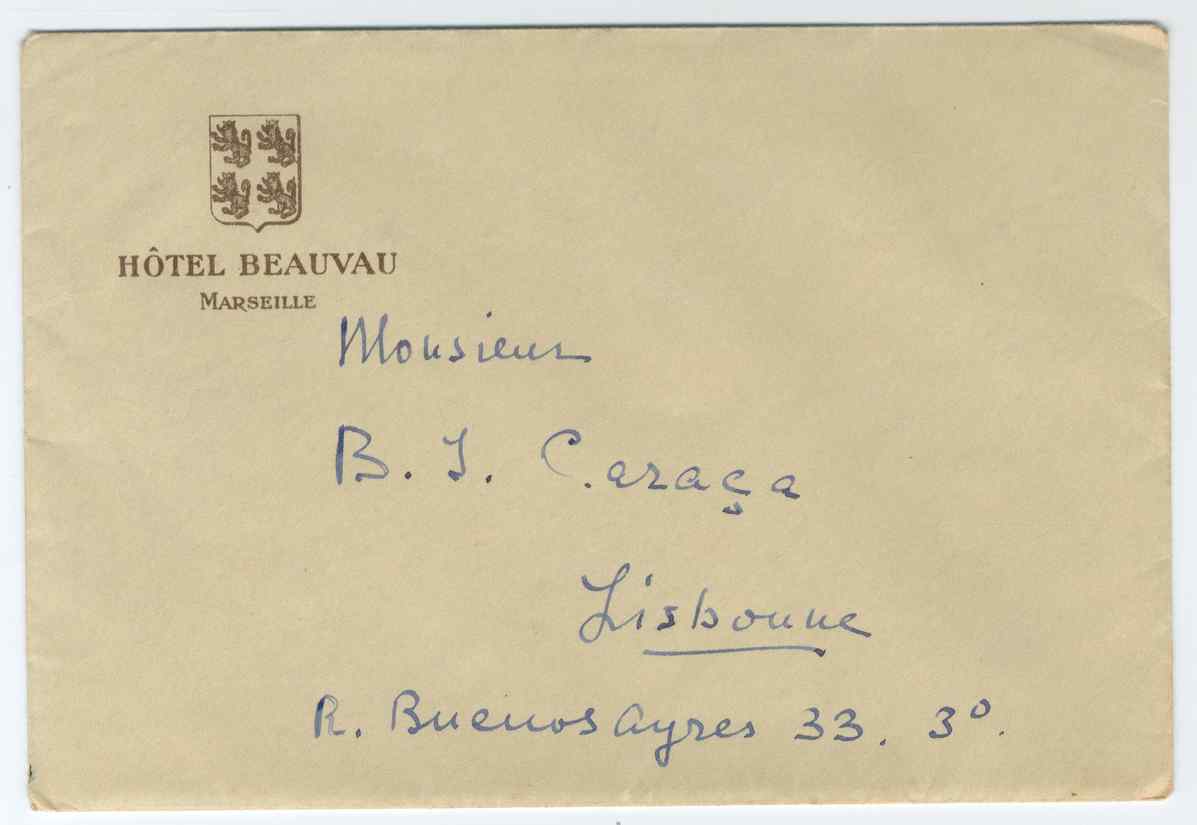 HÔTEL BEAUVAU
MARSEILLE
Monsieur
B. J. Caraça
Lisbonne
R. Buenos Ayres 33. 3º.